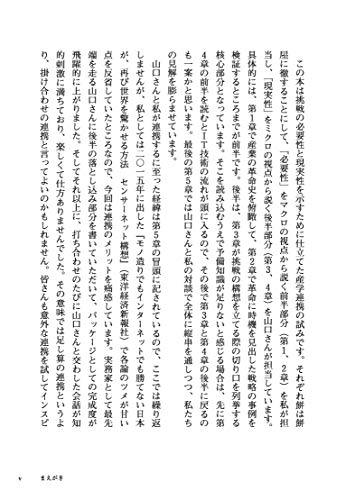 この本は挑戦の必要性と現実性を示すために仕立てた産学連携の試みです。それぞれ餅は餅
屋に徹することにして、「必要性」をマクロの視点から説く前半部分（第1、2章）を私が担
当し、「現実性」をミクロの視点から説く後半部分（第3、4章）を山口さんが担当しています。
具体的には、第1章で産業の革命史を俯瞰して、第2章で革命に時機を見出した戦略の事例を
検証するところまでが前半です。後半は、第3章が挑戦の構想を立てる際の切り口を列挙する
核心部分となっています。そこを読み込むうえで予備知識が足りないと感じる場合は、先に第
4章の前半を読むとIT技術の流れが頭に入るので、その後で第3章と第4章の後半に戻るの
も一案かと思います。最後の第5章では山口さんと私の対談で全体に縦串を通しつつ、私たち
の見解を膨らませています。
山口さんと私が連携するに至った経緯は第5章の冒頭に記されているので、ここでは繰り返
しませんが、私としては二〇一五年に出した『モノ造りでもインターネットでも勝てない日本
が、再び世界を驚かせる方法　センサーネット構想』（東洋経済新報社）で各論のツメが甘い
点を反省していたところなので、今回は連携のメリットを痛感しています。実務家として最先
端を走る山口さんに後半の落とし込み部分を書いていただいて、パッケージとしての完成度が
飛躍的に上がりました。そしてそれ以上に、打ち合わせのたびに山口さんと交わした会話が知
的刺激に満ちており、楽しくて仕方ありませんでした。その意味では足し算の連携というよ
り、掛け合わせの連携と言ってよいのかもしれません。皆さんも意外な連携を試してインスピ
v　まえがき